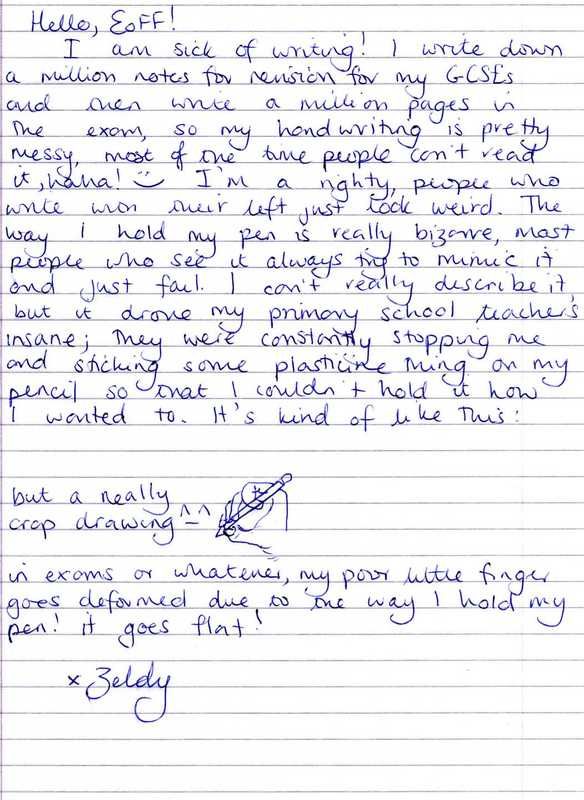 Hello, EoFF!
I am sick of writing! I write down
a million notes for revision for my GCSEs
and then write a million pages in
the exam, so my handwriting is pretty
messy, most of the time people can't read
it, haha! I'm a righty, people who
write with their left just look weird. The
way I hold my pen is really bizarre, most
people who see it always try to mimic it
and just fail. I can't really describe it,
but it drove my primary school teachers
insane; they were constantly stopping me
and sticking some plasticine thing on my
pencil so that I couldn't hold it how
I wanted to. It's kind of like this:
but a really
crap drawing ^_^
in exams or whatever, my poor little finger
goes deformed due to the way I hold my
pen! it goes flat!
x Zeldy